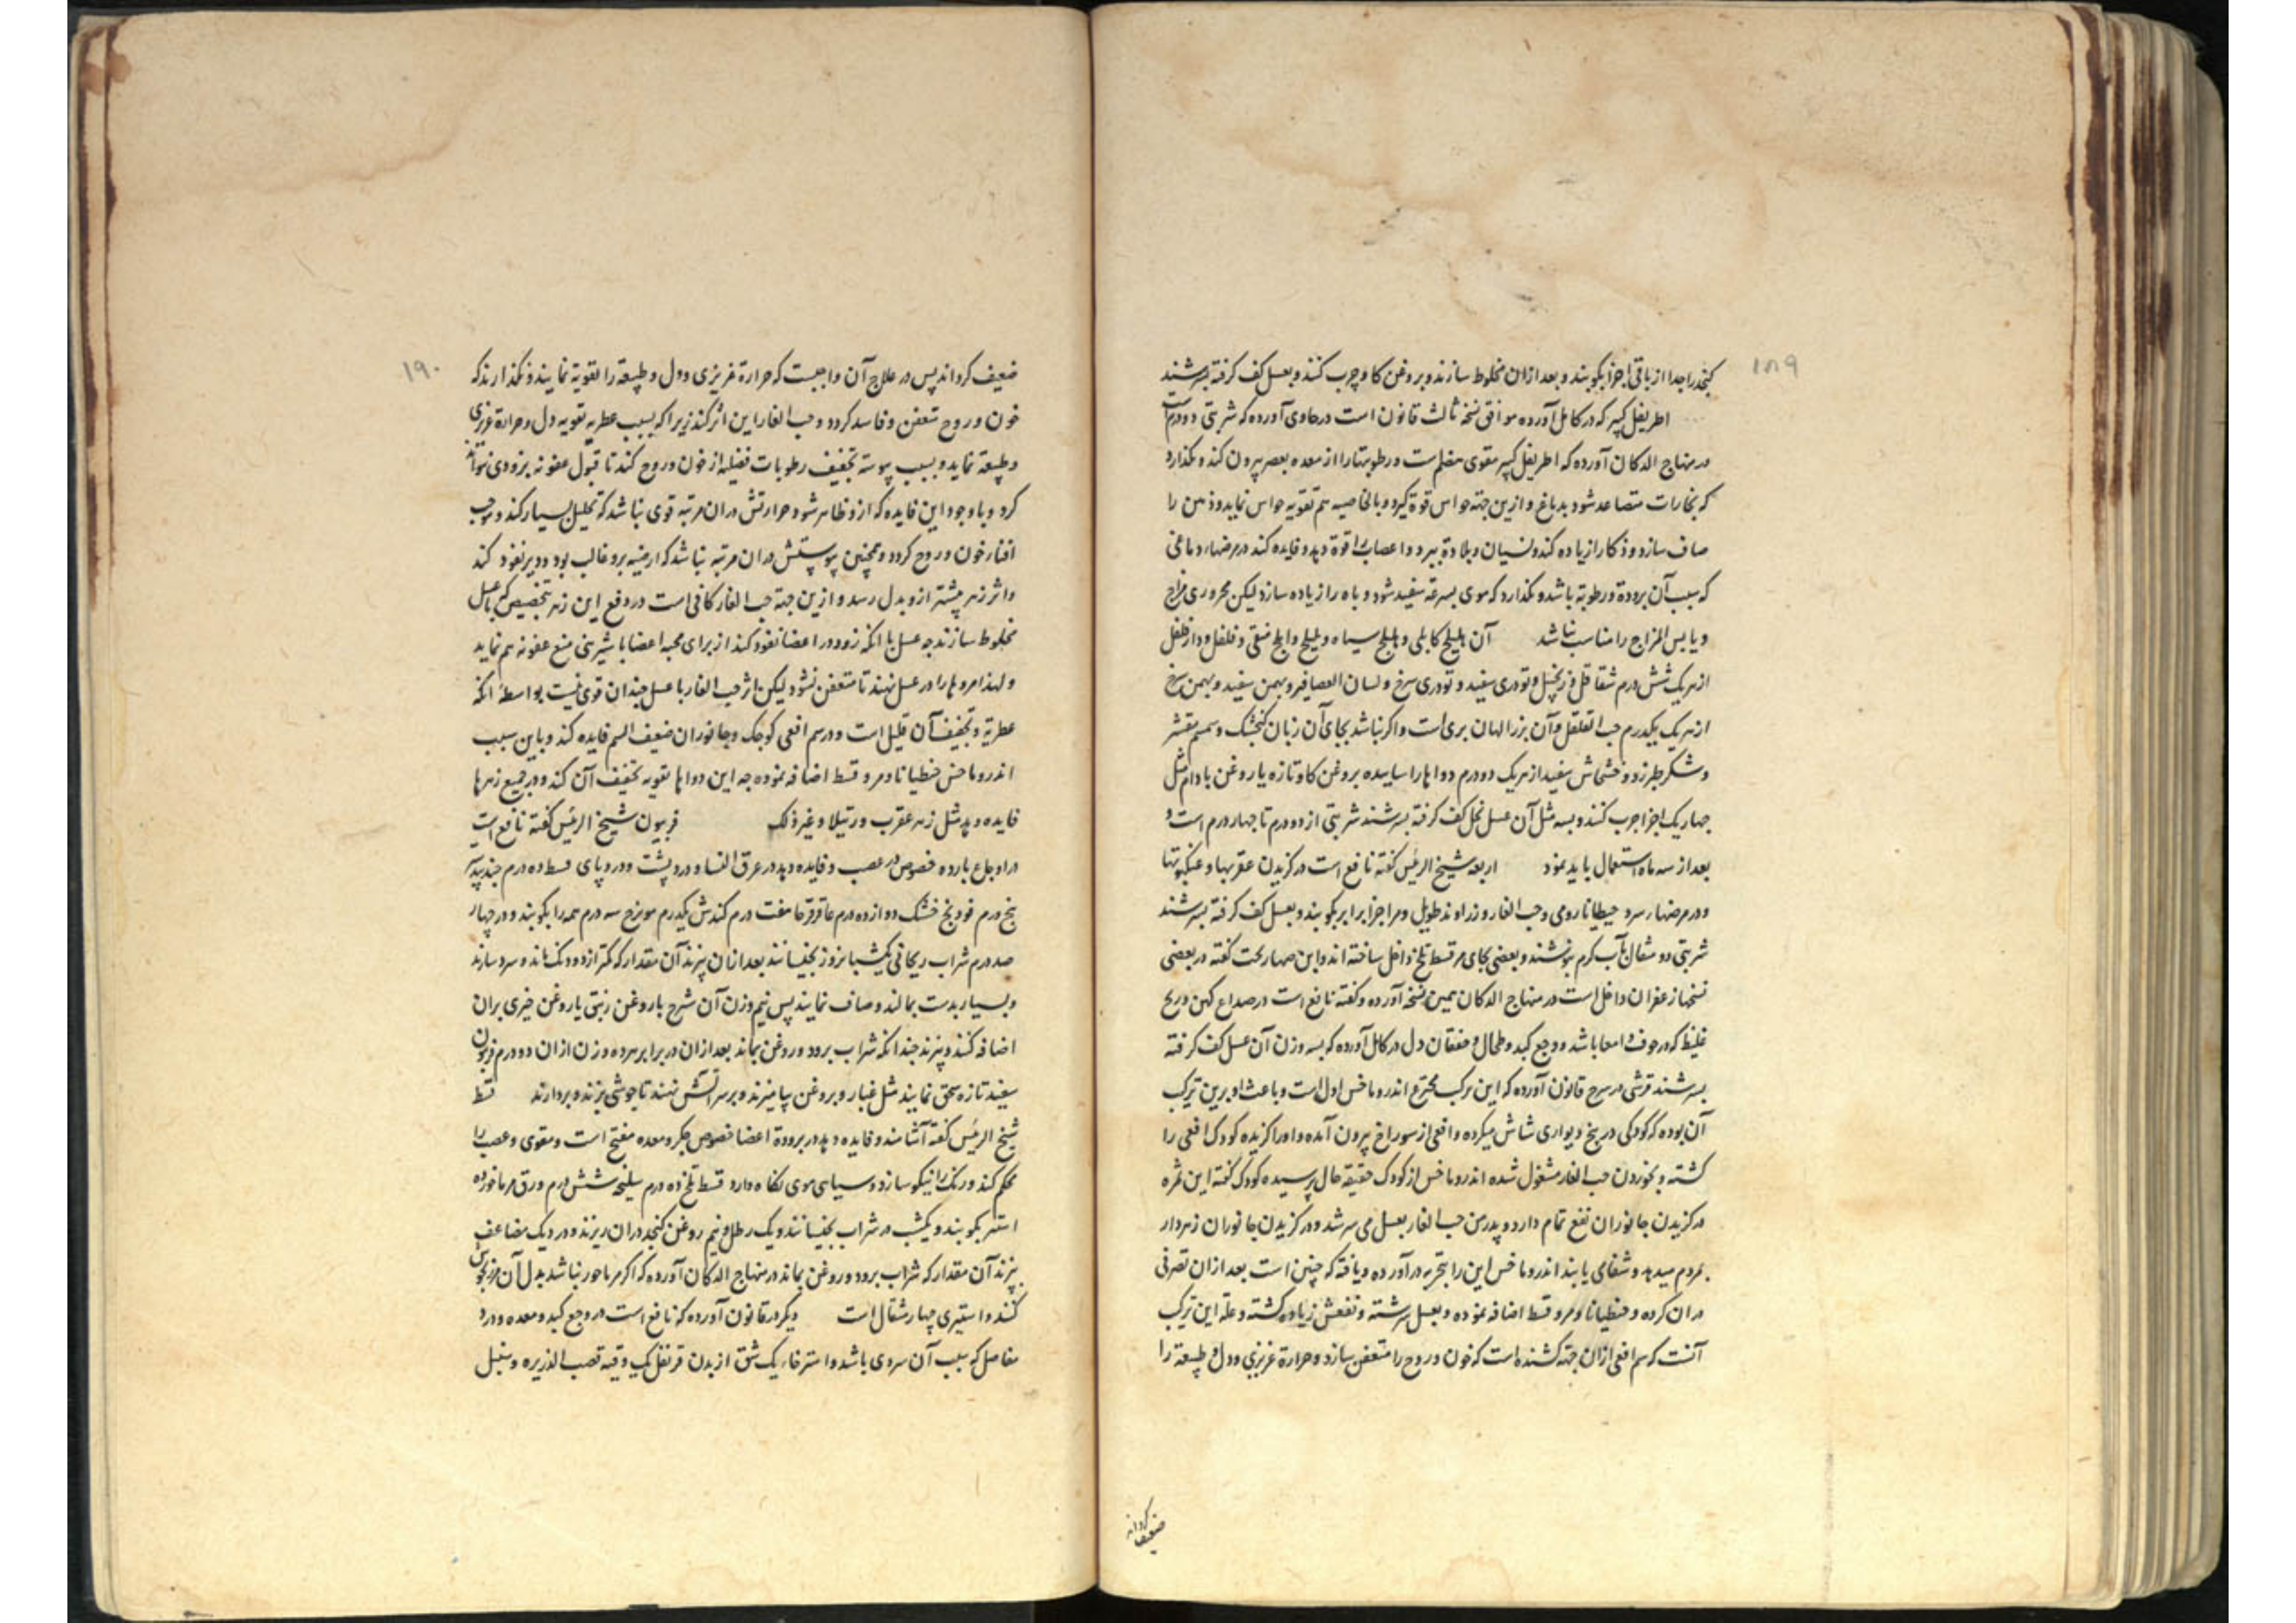 ۱۸۹
کنجد را جدا از باقی اجزا بکوبند و بعد ازان مخلوط سازند و بروغن کاو چرب کنند و بعسل کف کرفته بسرشند
اطریفل کبیر که در کامل آورده موافق نسخه ثالث قانون است در حاوی آورده که شربتی دو درم است
در منهاج الدکان آورده که اطریفل کبیر مقوی معده است و رطوبتها را از معده بعصر بیرون کند و نکذارد
که بخارات متصاعد شود بدماغ و ازین جهة حواس قوة کیرد و بالخاصیه هم تقویه حواس نماید و ذهن را
صاف سازد و ذکا را زیاده کند و نسیان و بلادة ببرد و اعصاب را قوة دهد و فایده کند در مرضهای دماغی
که سبب آن برودة و رطوبة باشد و نکذارد که موی بسرعة سفید شود و باه را زیاده سازد لیکن محروری مزاج
و یابس المزاج را مناسب نباشد آن هلیلج کابلی و هلیلج سیاه و بلیلج و املج منقی و فلفل و دارفلفل
از هر یک شش درم شقاقل و زنجبیل و تودری سفید و تودری سرخ و لسان العصافیر و بهمن سفید و بهمن سرخ
از هر یک یکدرم حب القلقل و آن بزر الهان بری است و اکر نباشد بجای آن زبان کنجشک و سمسم مقشر
و شکر طبرزد و خشخاش سفید از هر یک دو درم دواها را ساییده بروغن کاو تازه یا روغن بادام مثل
چهار یک اجزا چرب کنند و بسه مثل آن عسل نحل کف کرفته بسرشند شربتی از دو درم تا چهار درم است و
بعد از سه ماه استعمال باید نمود اربعه شیخ الرئیس کفته نافع است در کزیدن عقربها و عنکبوتها
و در مرضهای سرد جنطیانا رومی و حب الغار و زراوند طویل و مر اجزا برابر بکوبند و بعسل کف کرفته بسرشند
شربتی دو مثقال بآب کرم بنوشند و بعضی بجای مر قسط تلخ داخل ساخته اند و ابن صهاربخت کفته در بعضی
نسخها زعفران داخل است در منهاج الدکان همین نسخه آورده و کفته نافع است در صداع کهن و ریح
غلیظ که در جوف و امعا باشد و وجع کبد و طحال و خفقان دل در کامل آورده که بسه وزن آن عسل کف کرفته
بسرشند قرشی در شرح قانون آورده که این ترکب مخترع اندروماخس اول است و باعث او برین ترکیب
آن بوده که کودکی در بیخ دیواری شاش میکرده و افعی از سوراخ بیرون آمده و او را کزیده کودک افعی را
کشته و بخوردن حب الغار مشغول شده اندروماخس از کودک حقیقة حال پرسیده کودک کفته این ثمره
در کزیدن جانوران نفع تمام دارد و پدر من حب الغار بعسل می سرشد و در کزیدن جانوران زهردار
بمردم میدهد و شفا می یابند اندروماخس این را بتجربه در آورده و یافته که چنین است بعد ازان تصرفی
در ان کرده و جنطیانا و مر و قسط اضافه نموده و بعسل سرشته و نفعش زیاده کشته و علة این ترکیب
آنست که سم افعی ازان جهة کشنده است که خون و روح را متعفن سازد و حرارة غریزی و دل و طبیعة را
ضعیف کرداند
۱۹۰
ضعیف کرداند پس در علاج آن واجبست که حرارة غریزی و دل و طبیعة را تقویة نمایند و نکذارند که
خون و روح متعفن و فاسد کردد و حب الغار این اثر کند زیرا که بسبب عطریة تقویه دل و حرارة غریزی
و طبیعة نماید و بسبب یبوسته تجفیف رطوبات فضلیه از خون و روح کند تا قبول عفونه بزودی نتواند
کرد و با وجود این فایده که ازو ظاهر شود حرارتش دران مرتبه قوی نباشد که تحلیل بسیار کند و موجب
افناء خون و روح کردد و همچنین یبوستش دران مرتبه نباشد که ارضیة برو غالب بود و دیر نفوذ کند
و اثر زهر پیشتر ازو بدل رسد و ازین جهة حب الغار کافی است در دفع این زهر بتخصیص که با عسل
مخلوط سازند چه عسل با انکه زود در اعضا نفوذ کند از برای محبه اعضا با شیرینی منع عفونه هم نماید
و لهذا مروها را در عسل نهند تا متعفن نشود لیکن اثر حب الغار با عسل چندان قوی نیست بواسطه انکه
عطریة و تجفیف آن قلیل است و در سم افعی کوچک و جانوران ضعیف السم فایده کند و باین سبب
اندروماخس جنطیانا و مر و قسط اضافه نموده چه این دواها تقویه تجفیف آن کند و در جمیع زهرها
فایده دهد مثل زهر عقرب و رتیلا و غیر ذلک فربیون شیخ الرئیس کفته نافع است
در اوجاع بارده خصوص در عصب و فایده دهد در عرق النسا و درد پشت و درد پای قسط ده درم جندبیدستر
پنج درم فودنج خشک دوازده درم عاقرقرحا هفت درم کندش یکدرم مویزج سه درم همه را بکوبند و در چهار
صد درم شراب ریحانی یکشبانروز بخیسانند بعد ازان بپزند آن مقدار که کمتر از دو دنک ماند و سرد سازند
و بسیار بدست بمالند و صاف نمایند پس نیم وزن آن شرج با روغن زنبق یا روغن خیری بران
اضافه کنند و بپزند چندانکه شراب برود و روغن بماند بعد ازان در برابر هر ده وزن ازان دو درم فربیون
سفید تازه سحق نمایند مثل غبار و بروغن بیامیزند و بر سر آتش نهند تا جوشی بزند و بردارند قسط
شیخ الرئیس کفته آشامند و فایده دهد در برودة اعضا خصوص جکر و معده مفتح است و مقوی و عصب را
محکم کند و رنک را نیکو سازد و سیاهی موی نکاه دارد قسط تلخ ده درم سلیخه شش درم ورق مرماخوز ده
استیر بکوبند و یکشب در شراب بخیسانند و یک رطل و نیم روغن کنجد دران ریزند و در دیک مضاعف
بپزند آن مقدار که شراب برود و روغن بماند در منهاج الدکان آورده که اکر مرماحور نباشد بدل آن مرزنجوش
کنند و استیری چهار مثقال است دیکر در قانون آورده که نافع است در وجع کبد و معده و درد
مفاصل که سبب آن سردی باشد و استرخاء یک شق از بدن قرنفل یک وقیه قصب الذریره و سنبل